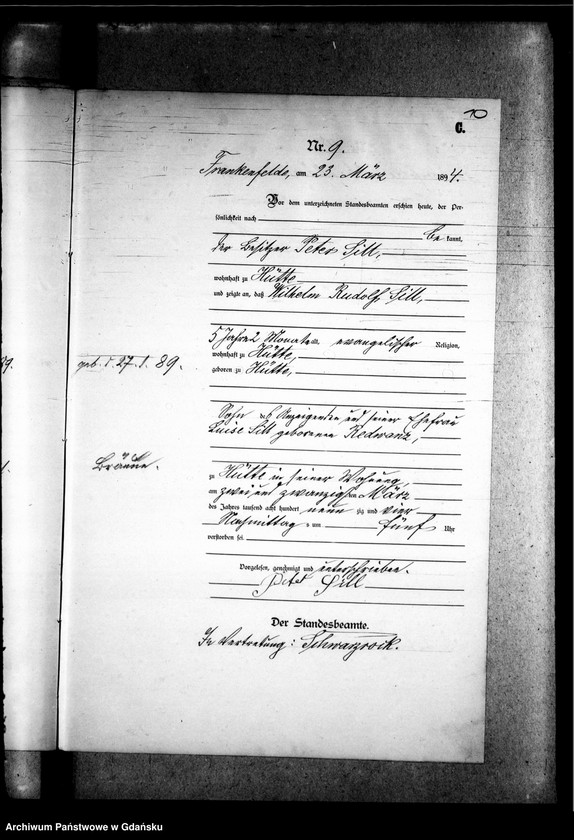 10
C.
Nr. 9.
Frankenfelde, am 23. März 1894.
Vor dem unterzeichneten Standesbeamten erschien heute, der Per-
sönlichkeit nach
be kannt,
der Besitzer Peter Sill,
wohnhaft zu Hütte,
und zeigte an, daß Wilhelm Rudolf Sill,
5 Jahre 2 Monate alt, evangelischer Religion,
wohnhaft zu Hütte,
geb. d. 27. 1. 89.
geboren zu Hütte,
Sohn des Anzeigenden und seiner Ehefrau
Luise Sill geborenen Redwanz,
Bräune.
zu Hütte in seiner Wohnung,
am zwei und zwanzigsten März
des Jahres tausend acht hundert neun zig und vier
Nachmittags um fünf Uhr
verstorben sei
Vorgelesen, genehmigt und unterschrieben.
Peter Sill
Der Standesbeamte.
In Vertretung: Schwarzrock.
Archiwum Państwowe w Gdańsku